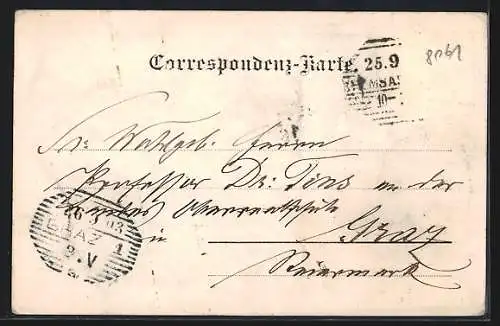 Correspondenz-Karte
25.9
MSA
10-
8061
Sr. Wohlgeb. Herrn
Professor Dr: Tins an der
Oberrealschule
in Graz
Steiermark
26 9 03
GRAZ 1
9.V